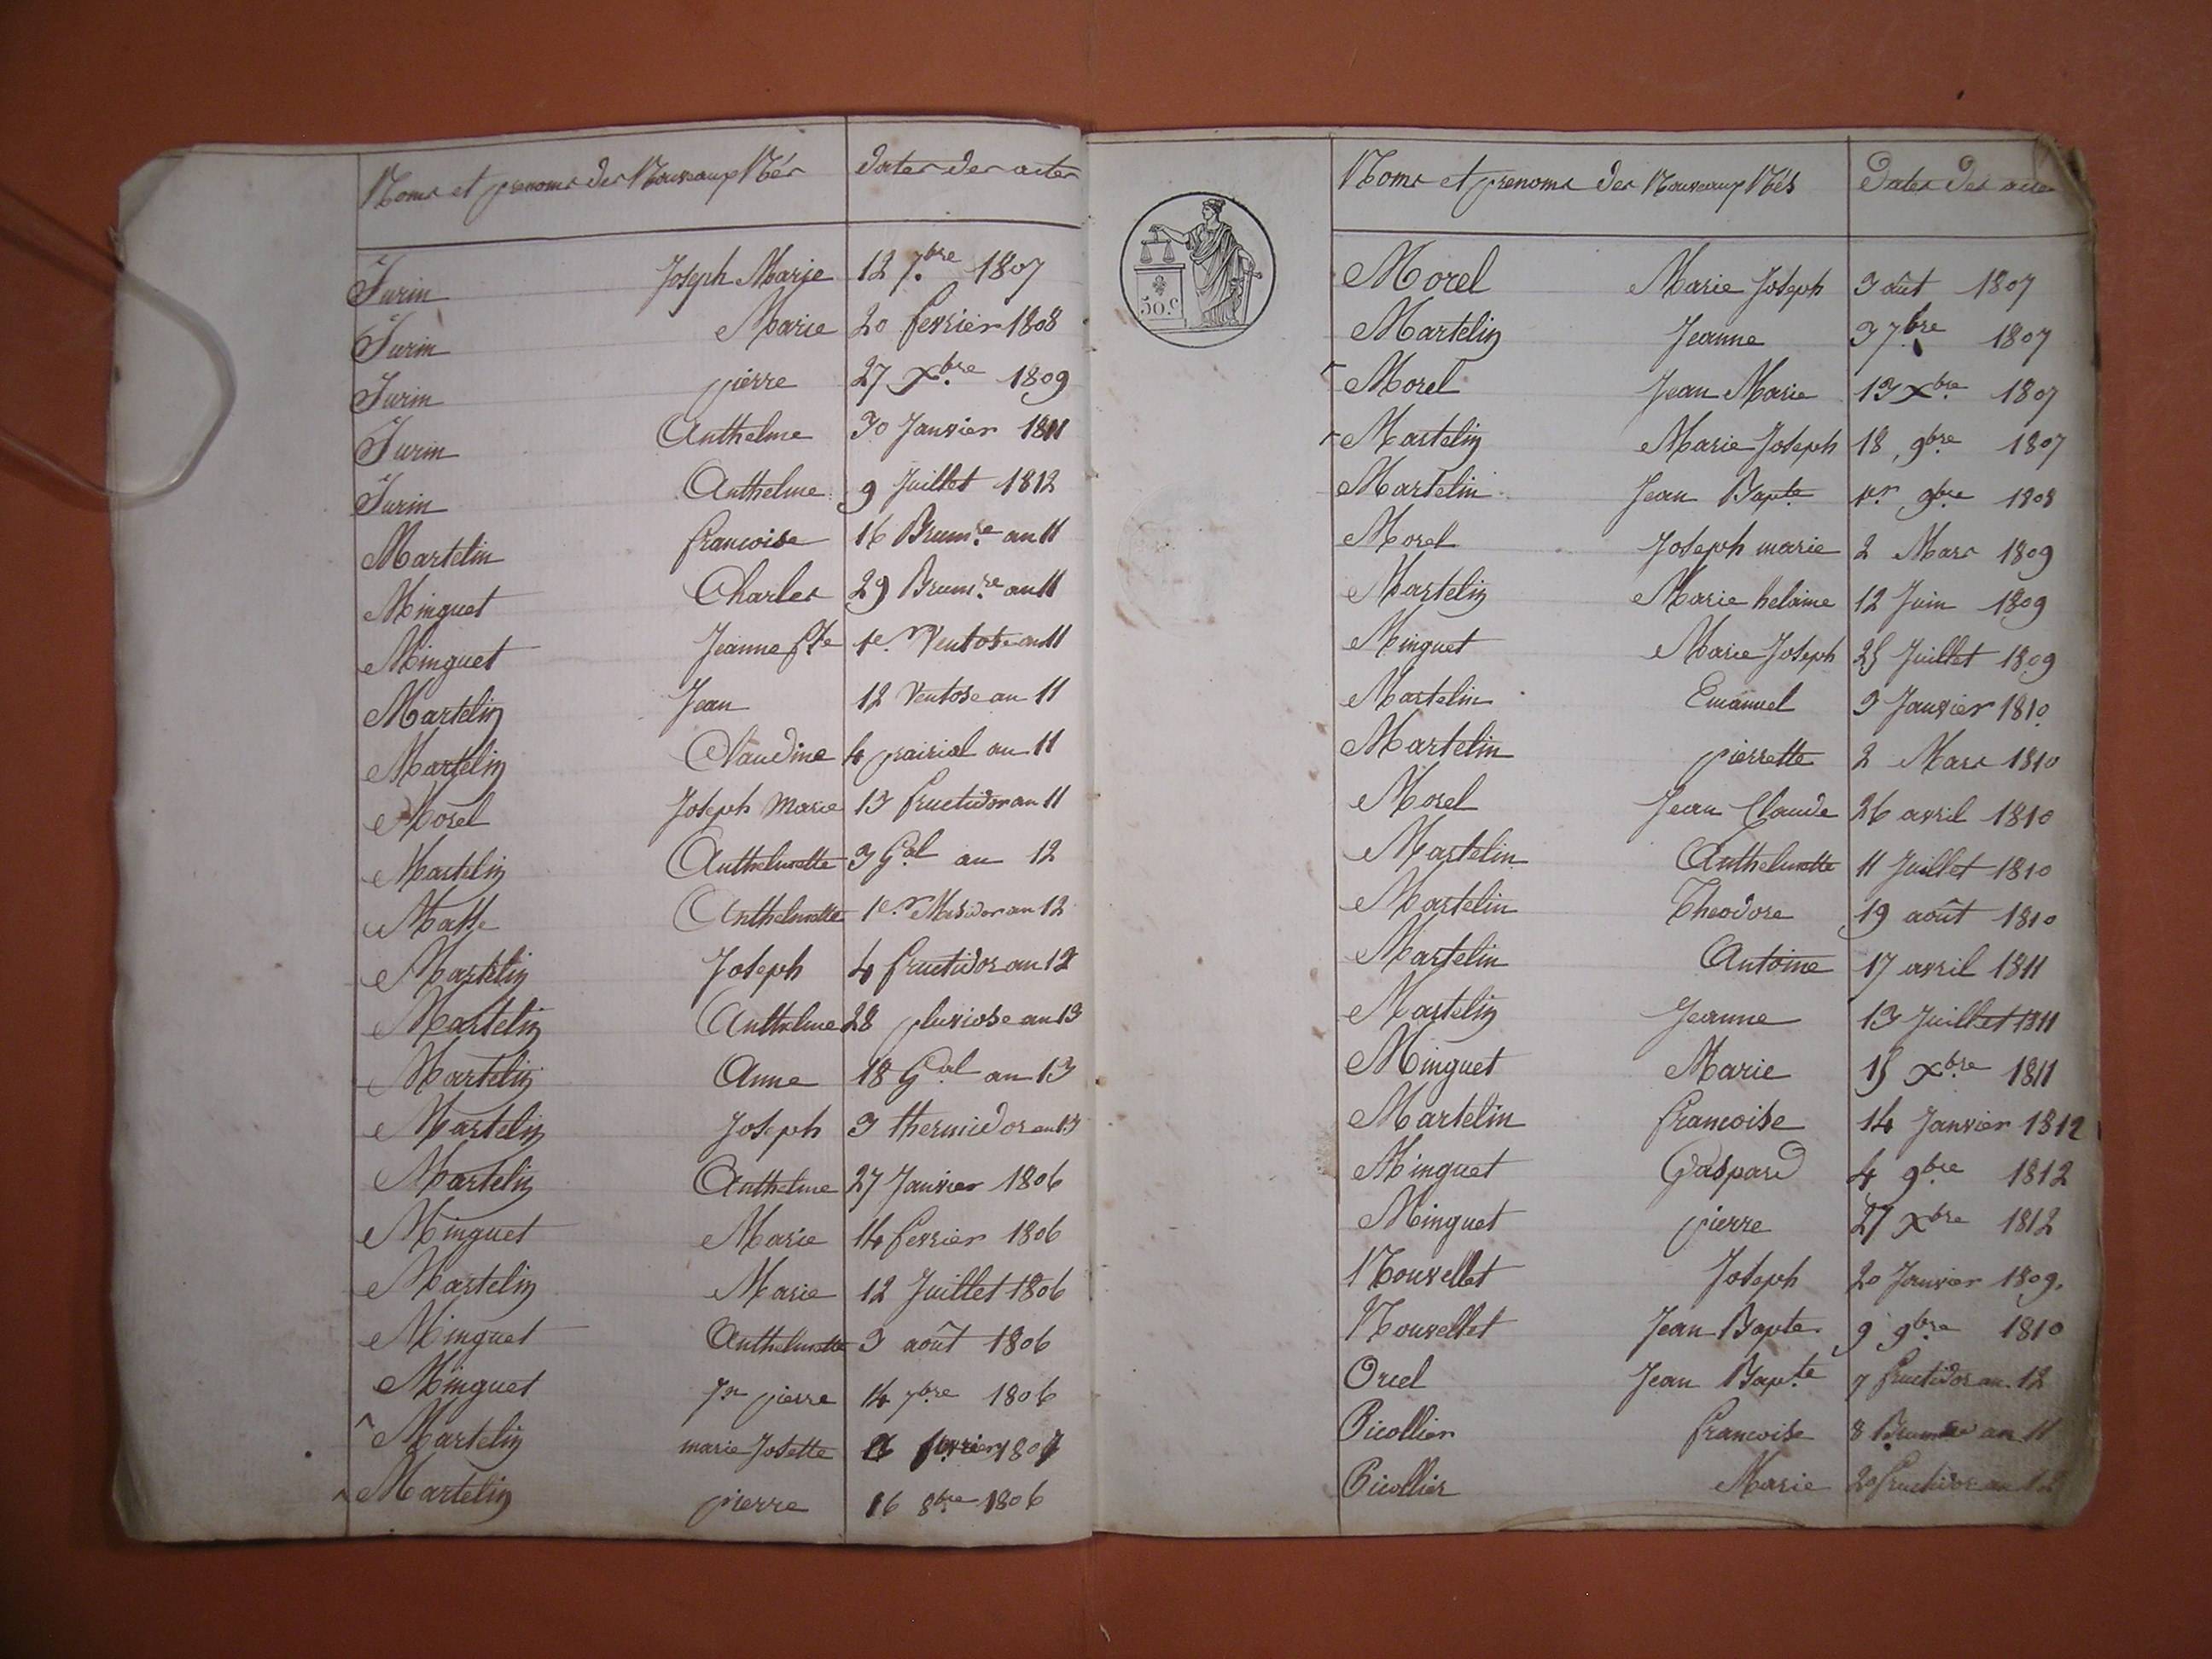 Noms et prenoms des Nouveaux Nés dates des actes
Jurin Joseph Marie 12 7.bre 1807
Jurin Marie 20 fevrier 1808
Jurin pierre 27 Xbre 1809
Jurin Anthelme 30 Janvier 1811
Jurin Anthelme 9 Juillet 1812
Martelin francoise 16 Brum.re an 11
Minguet Charles 29 Brum.re an 11
Minguet Jeanne fse 1er Ventose an 11
Martelin Jean 12 Ventose an 11
Martelin Claudine 4 prairial an 11
Morel Joseph Marie 13 fructidor an 11
Martelin Anthelmette 3 G.al an 12
Anthelmette 1er Mesidor an 12
Martelin Joseph 4 fructidor an 12
Martelin Anthelme 28 pluviose an 13
Martelin Anne 18 G.al an 13
Martelin Joseph 3 thermidor an 13
Martelin Anthelme 27 Janvier 1806
Minguet Marie 14 fevrier 1806
Martelin Marie 12 Juillet 1806
Minguet Anthelmette 3 août 1806
Minguet Jn pierre 14 7bre 1806
Martelin marie Josette fevrier 1807
Martelin pierre 16 8bre 1806
50.c
Noms et prenoms des Nouveaux Nés Dates des actes
Morel Marie Joseph 3 aût 1807
Martelin Jeanne 3 7bre 1807
Morel Jean Marie 13 Xbre 1807
Martelin Marie Joseph 18 9bre 1807
Martelin Jean Bapte 1er 9bre 1808
Morel Joseph marie 2 Mars 1809
Martelin Marie helaine 12 Juin 1809
Minguet Marie Joseph 25 Juillet 1809
Martelin Emanuel 9 Janvier 1810
Martelin pierrette 2 Mars 1810
Morel Jean Claude 26 avril 1810
Martelin Anthelmette 11 Juillet 1810
Martelin Theodore 19 août 1810
Martelin Antoine 17 avril 1811
Martelin Jeanne 13 Juillet 1811
Minguet Marie 15 Xbre 1811
Martelin francoise 14 Janvier 1812
Minguet Gaspard 4 9bre 1812
Minguet pierre 27 Xbre 1812
Nouvellet Joseph 20 Janvier 1809.
Nouvellet Jean Bapte 9 9bre 1810
Orcel Jean Bapte 7 fructidor an 12
Picollier francoise 8 Brumre an 11
Picollier Marie 20 fructidor an 12